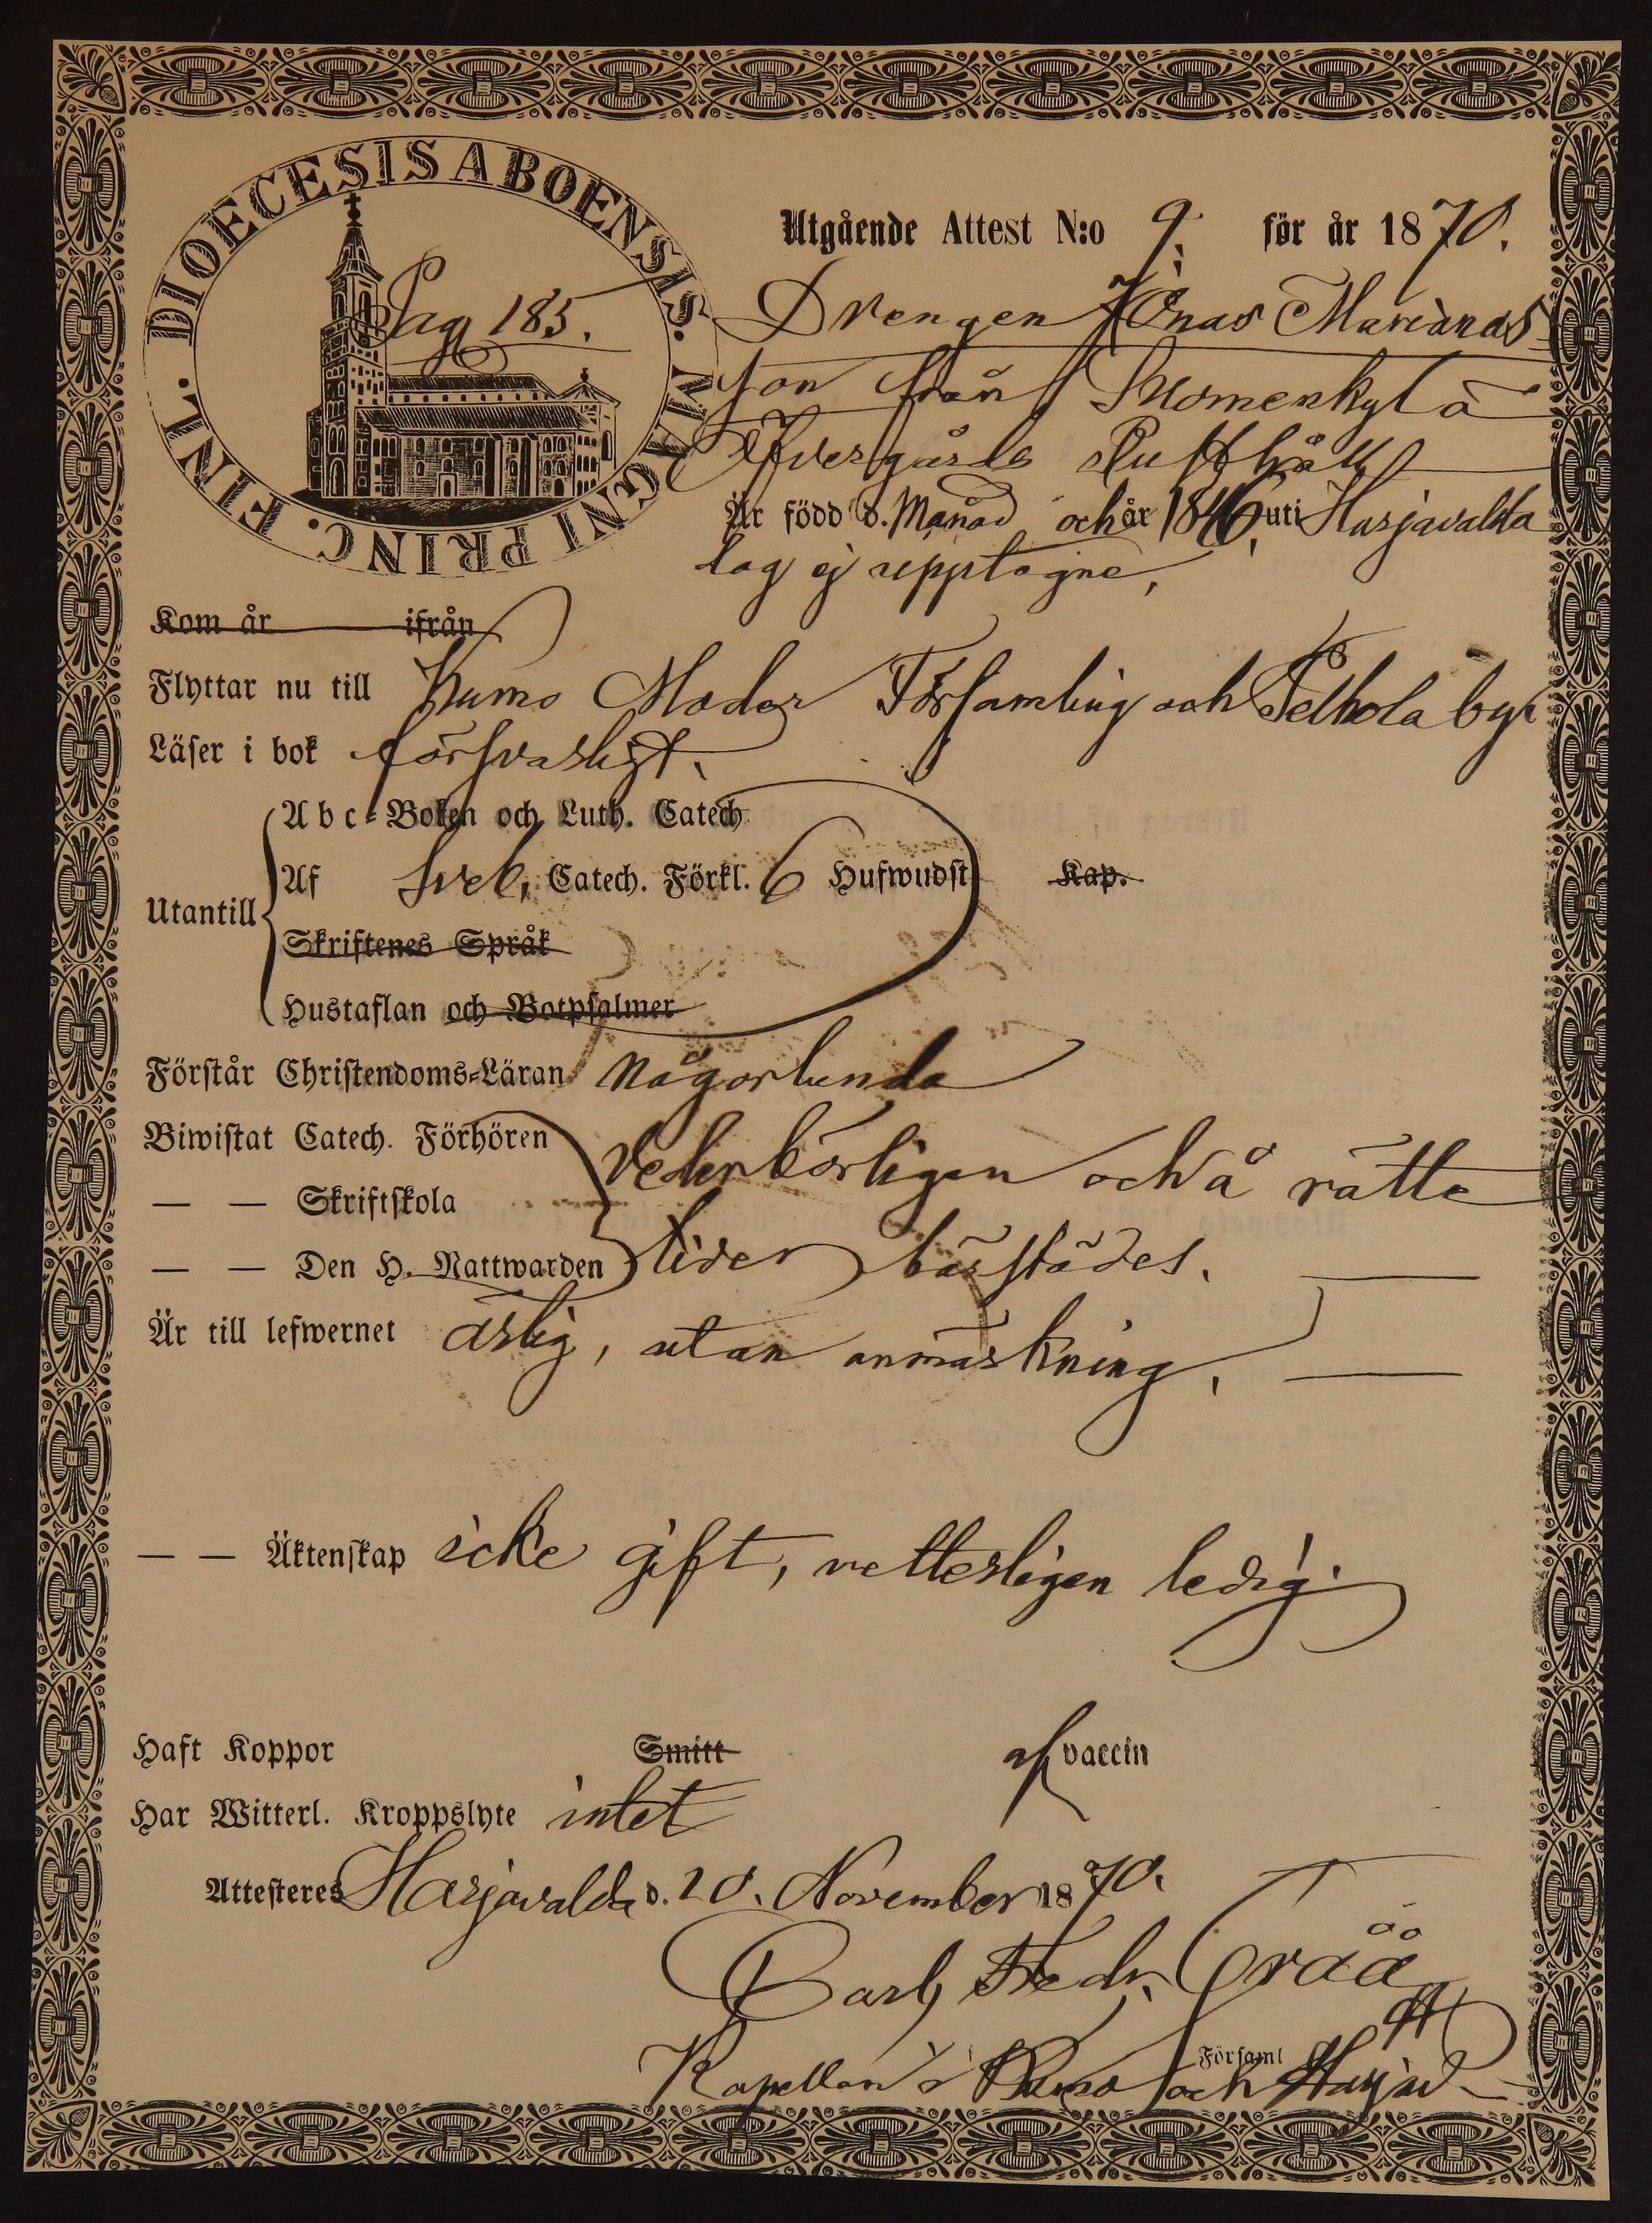 DIOECESIS ABOENSIS. MAGNI PRINC. FINL.
Pag 185.
Utgående Attest N:o 9. för år 1870.
Drengen Jonas Marianas
son från Suomenkylä
Öfvergårds Rusthåll
Är född d. Månad och år 1846, uti Harjavalda
dag ej upptagne,
Kom år ifrån
Flyttar nu till Kumo Moder Församling och Pelhola by.
Läser i bok försvarligt.
Abc-Boken och Luth. Catech
Utantill
Af Sveb. Catech. Förkl. 6 Hufwudst Kap.
Skriftenes Språk
Hustaflan och Botpsalmer
Förstår Christendoms-Läran någorlunda
Biwistat Catech. Förhören
— — Skriftskola
— — Den H. Nattwarden
Vederbörligen och å rätta
tider härstädes.
Är till lefwernet ärlig, utan anmärkning.
— — Äktenskap icke gift, vetterligen ledig.
Haft Koppor Smitt af vaccin
Har Witterl. Kroppslyte intet
Attesteras Harjavalda d. 20. November 1870.
Carl Fredr.
Kapellan i Kumo och Harjav
Församl